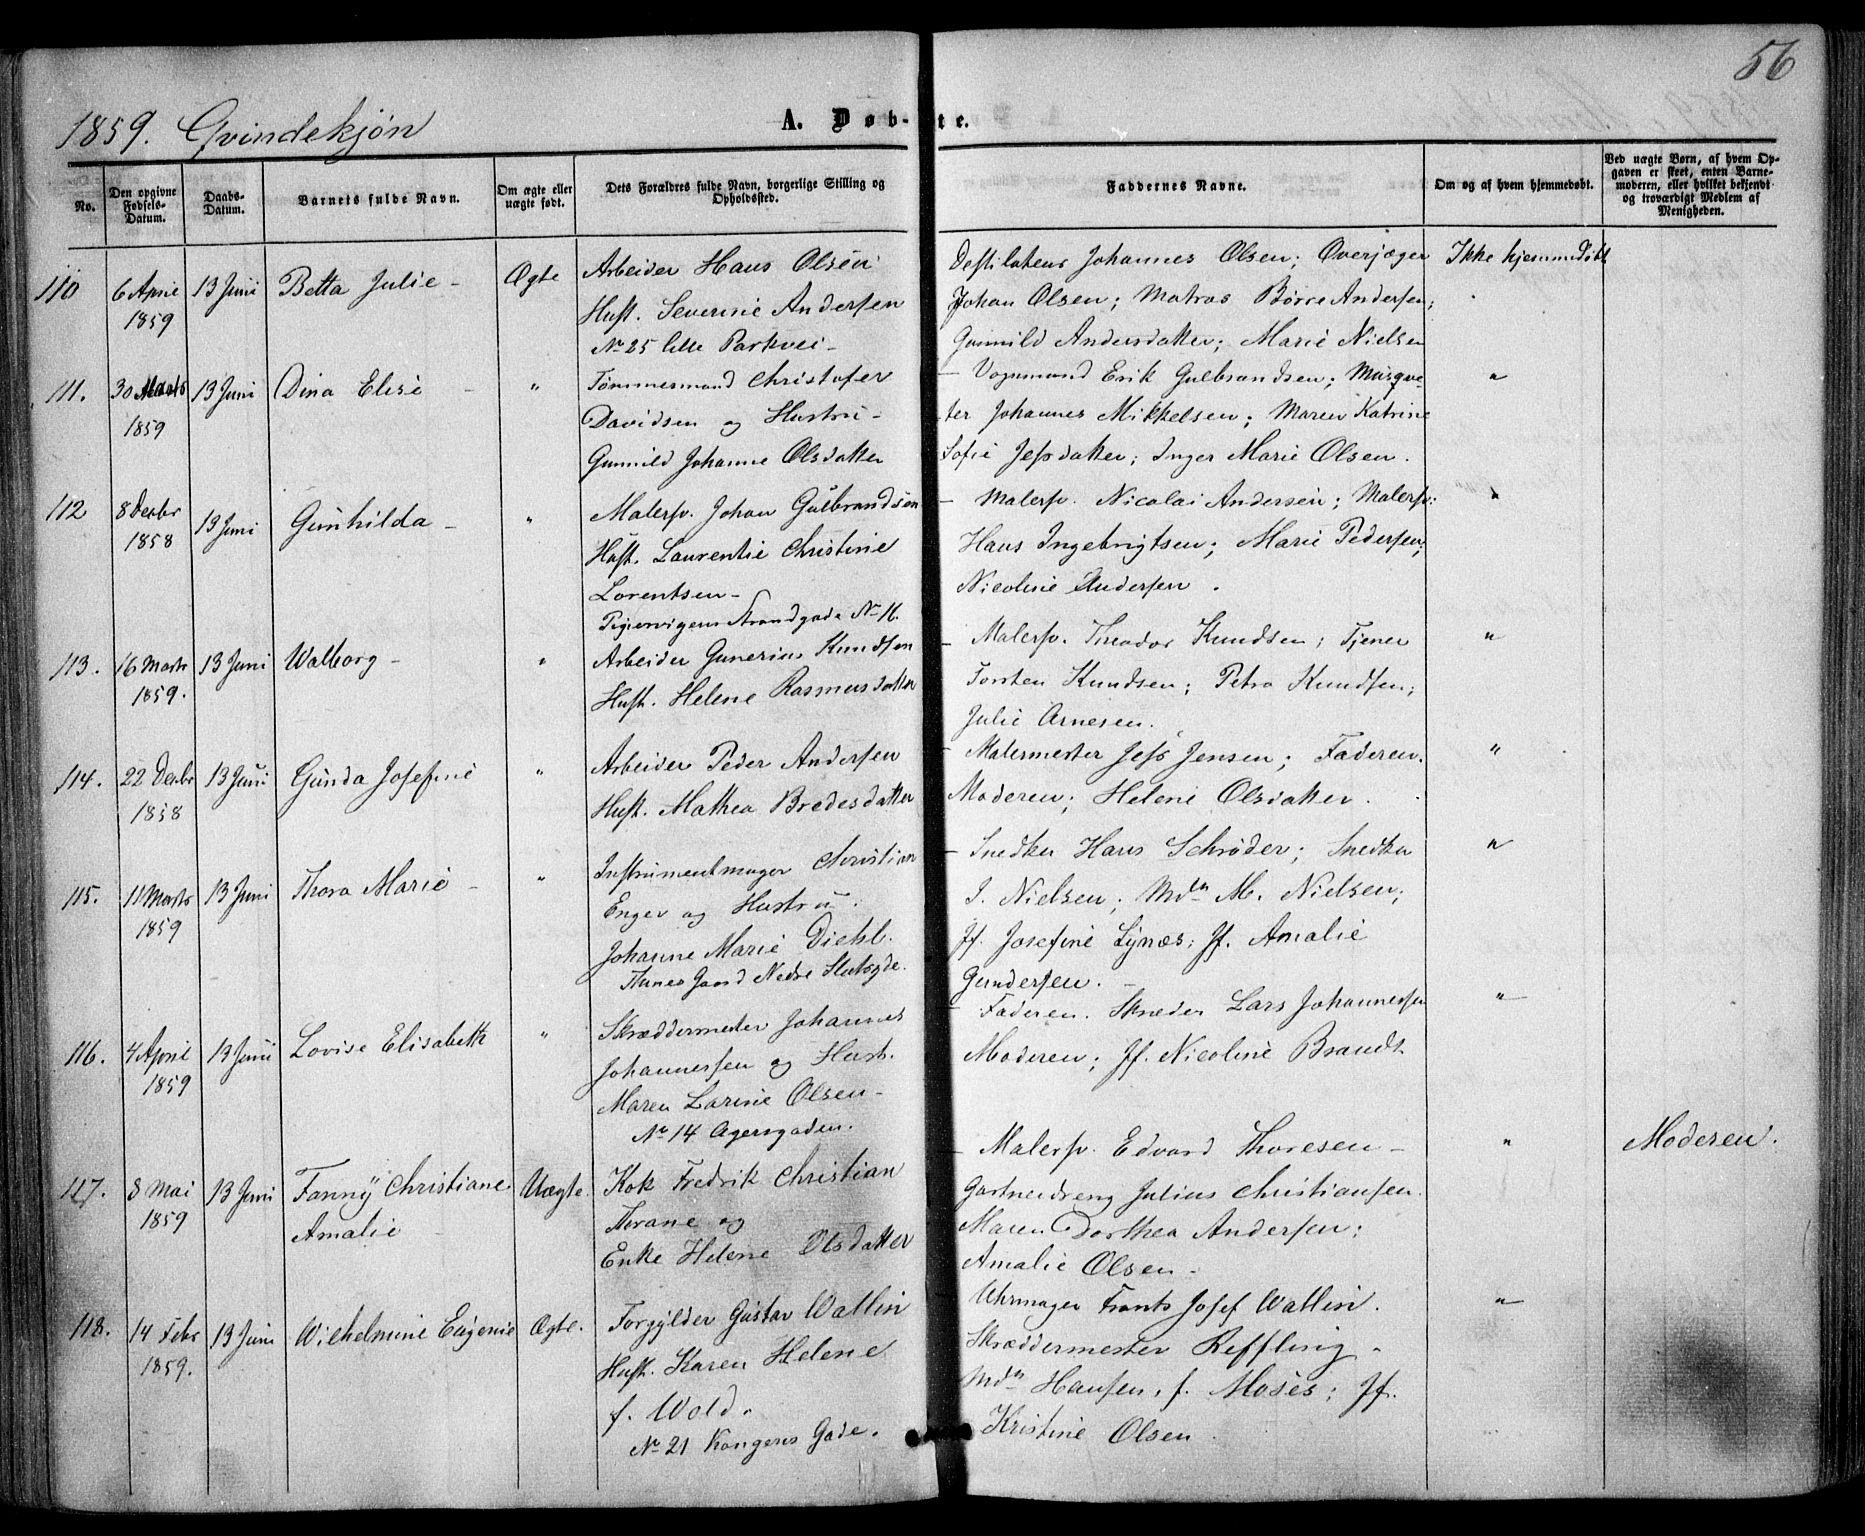 56
1859. Qvindekjøn
A. Døb-te.
No.
Den opgivne Fødsels-Datum.
Daabs-Datum.
Barnets fulde Navn.
Om ægte eller uægte født.
Dets Forældres fulde Navn, borgerlige Stilling og Opholdssted.
Faddernes Navne.
Om og af hvem hjemmedøbt.
Ved uægte Børn, af hvem Op-
gaven er skeet, enten Barne-
moderen, eller hvilket bekjendt
og troværdigt Medlem af
Menigheden.
110
6 April
1859
13 Juni
Betta Julie -
Ægte
Arbeider Hans Olsen
Hust. Severine Andersen
No 25 lille Parkvei -
Destilateur Johannes Olsen; Overjæger
Johan Olsen; Matros Børre Andersen;
Gunnild Andersdatter; Marie Nielsen
Ikke hjemmedøbt
111.
30 Marts
1859
13 Juni
Dina Elise
"
Tømmermand Christofer
Davidsen og Hustru -
Gunnild Johanne Olsdatter
- Vognmand Erik Gulbrandsen; Musqve-
ter Johannes Mikkelsen; Maren Katrine
Sofie Jessdatter; Inger Marie Olsen.
"
112
8 Decbr
1858
13 Juni
Gunhilda -
"
Malersv. Johan Gulbrandsen
Hust. Laurentie Christine
Lorentsen -
Strandgade No 16.
- Malersv. Nicolai Andersen; Malersv.
Hans Ingebrigtsen; Marie Pedersen;
Nicoline Andersen.
"
113.
16 Marts
1859.
13 Juni
Walborg -
"
Arbeider Gunerius Knudsen
Hust. Helene Rasmusdatter
- Malersv. Theodor Knudsen; Tjener
Torsten Knudsen; Petra Knudsen;
Julie Arnesen.
"
114.
22 Decbr
1858
13 Juni
Gunda Josefine
"
Arbeider Peder Andersen
Hust. Mathea Bredesdatter
- Malermester Jess Jensen; Faderen.
Moderen; Helene Olsdatter.
"
115.
11 Marts
1859
13 Juni
Thora Marie -
"
Instrumentmager Christian
Enger og Hustru
Johanne Marie Diehl.
Thunes Gaard Nedre Slotsgde.
- Snedker Hans Schrøder; Snedker
J. Nielsen; Mdm M. Nielsen;
Jf. Josefine Lynæs; Jf. Amalie
Gundersen.
"
116.
4 April
1859
13 Juni
Lovise Elisabeth
"
Skræddermester Johannes
Johannessen og Hust.
Maren Larine Olsen -
No 14 Agersgaden.
- Faderen. Skræder Lars Johannessen
Moderen; Jf. Nicoline Brandt
"
117.
8 Mai
1859
13 Juni
Fanny Christiane
Amalie
Uægte.
Kok Fredrik Christian
Thrane og
Enke Helene Olsdatter
- Malersv. Edvard Thoresen -
Gartnerdreng Julius Christiansen.
Maren Dorthea Andersen;
Amalie Olsen -
"
Moderen.
118.
14 Febr
1859.
13 Juni
Wilhelmine Eugenie
Ægte.
Forgylder Gustav Wallin
Hust. Karen Helene
f. Wold.
No 21 Kongens Gade.
Uhrmager Frants Josef Wallin.
Skræddermester Reffling.
Mdm Hansen, f. Moses; Jf.
Kristine Olsen
"